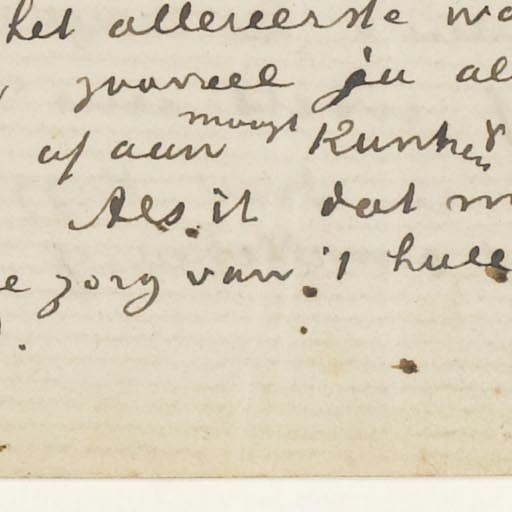 het allereerste wa
, zooveel ju al
of aan moogt Kunt
Als 't dat m
e zorg van 't huee